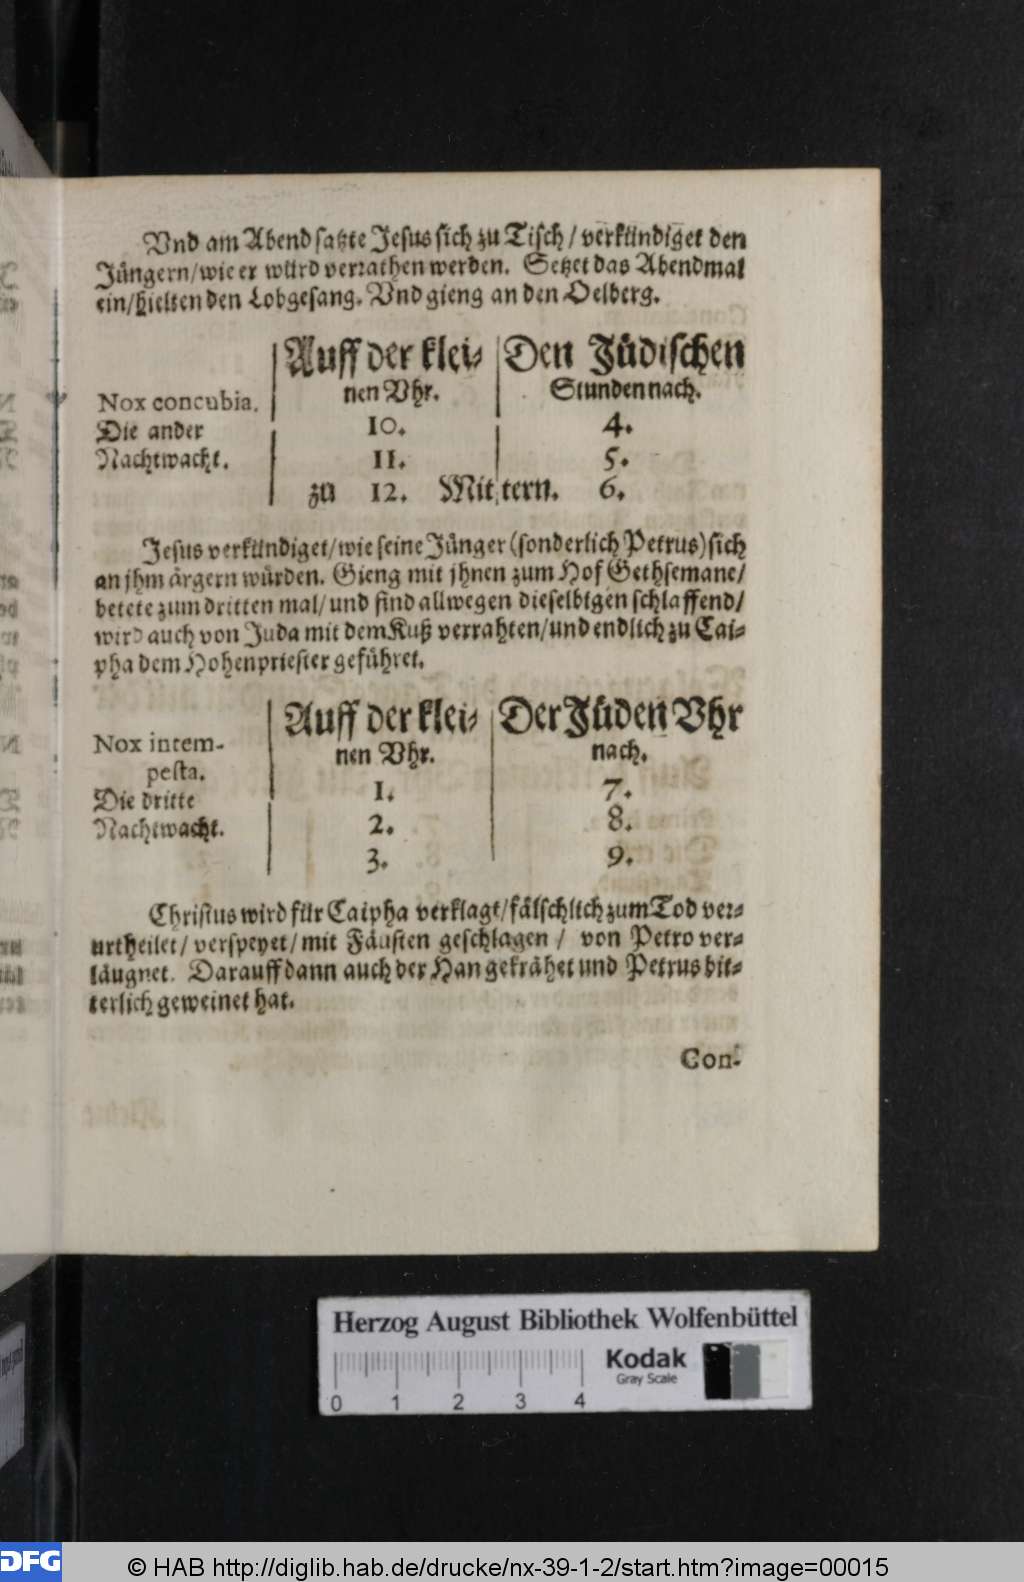 Vnd am Abend satzte Jesus sich zu Tisch / verkündiget den
Jüngern/wie er würd verrathen werden. Setzet das Abendmal
ein/hielten den Lobgesang. Vnd gieng an den Oelberg.
Auff der klei- Den Jüdischen
nen Vhr. Stunden nach.
Nox concubia.
Die ander 10. 4.
Nachtwacht. 11. 5.
zu 12. Mittern. 6.
Jesus verkündiget/wie seine Jünger (sonderlich Petrus) sich
an jhm ärgern würden. Gieng mit jhnen zum Hof Gethsemane/
betete zum dritten mal/ und find allwegen dieselbigen schlaffend/
wird auch von Juda mit dem Kuß verrahten/und endlich zu Cai-
pha dem Hohenpriester geführet.
Auff der klei- Der Jüden Vhr
nen Vhr. nach.
Nox intem-
pesta.
Die dritte 1. 7.
Nachtwacht. 2. 8.
3. 9.
Christus wird für Caipha verklagt/fälschlich zum Tod ver-
urtheilet/ verspeyet/ mit Fäusten geschlagen / von Petro ver-
läugnet. Darauff dann auch der Han gekrähet und Petrus bit-
terlich geweinet hat.
Con-
Herzog August Bibliothek Wolfenbüttel
Kodak
Gray Scale
0 1 2 3 4
DFG
© HAB http://diglib.hab.de/drucke/nx-39-1-2/start.htm?image=00015